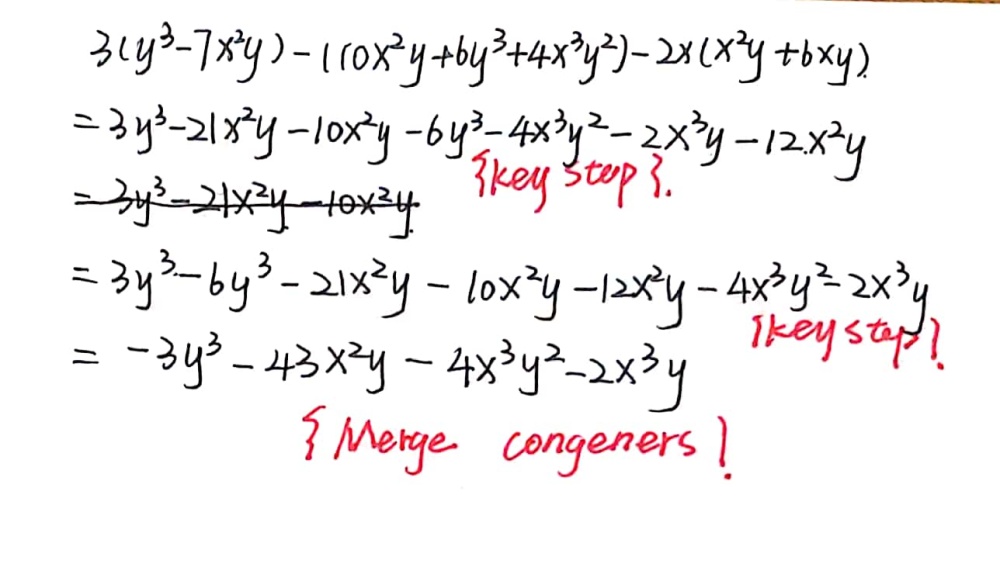 3(y³-7x²y)-(10x²y+6y³+4x³y²)-2x(x²y+6xy).
=3y³-21x²y-10x²y-6y³-4x³y²-2x³y-12x²y
{key step}.
=3y³-21x²y-10x²y.
=3y³-6y³-21x²y-10x²y-12x²y-4x³y²-2x³y
{key step}.
=-3y³-43x²y-4x³y²-2x³y
{Merge congeners}.